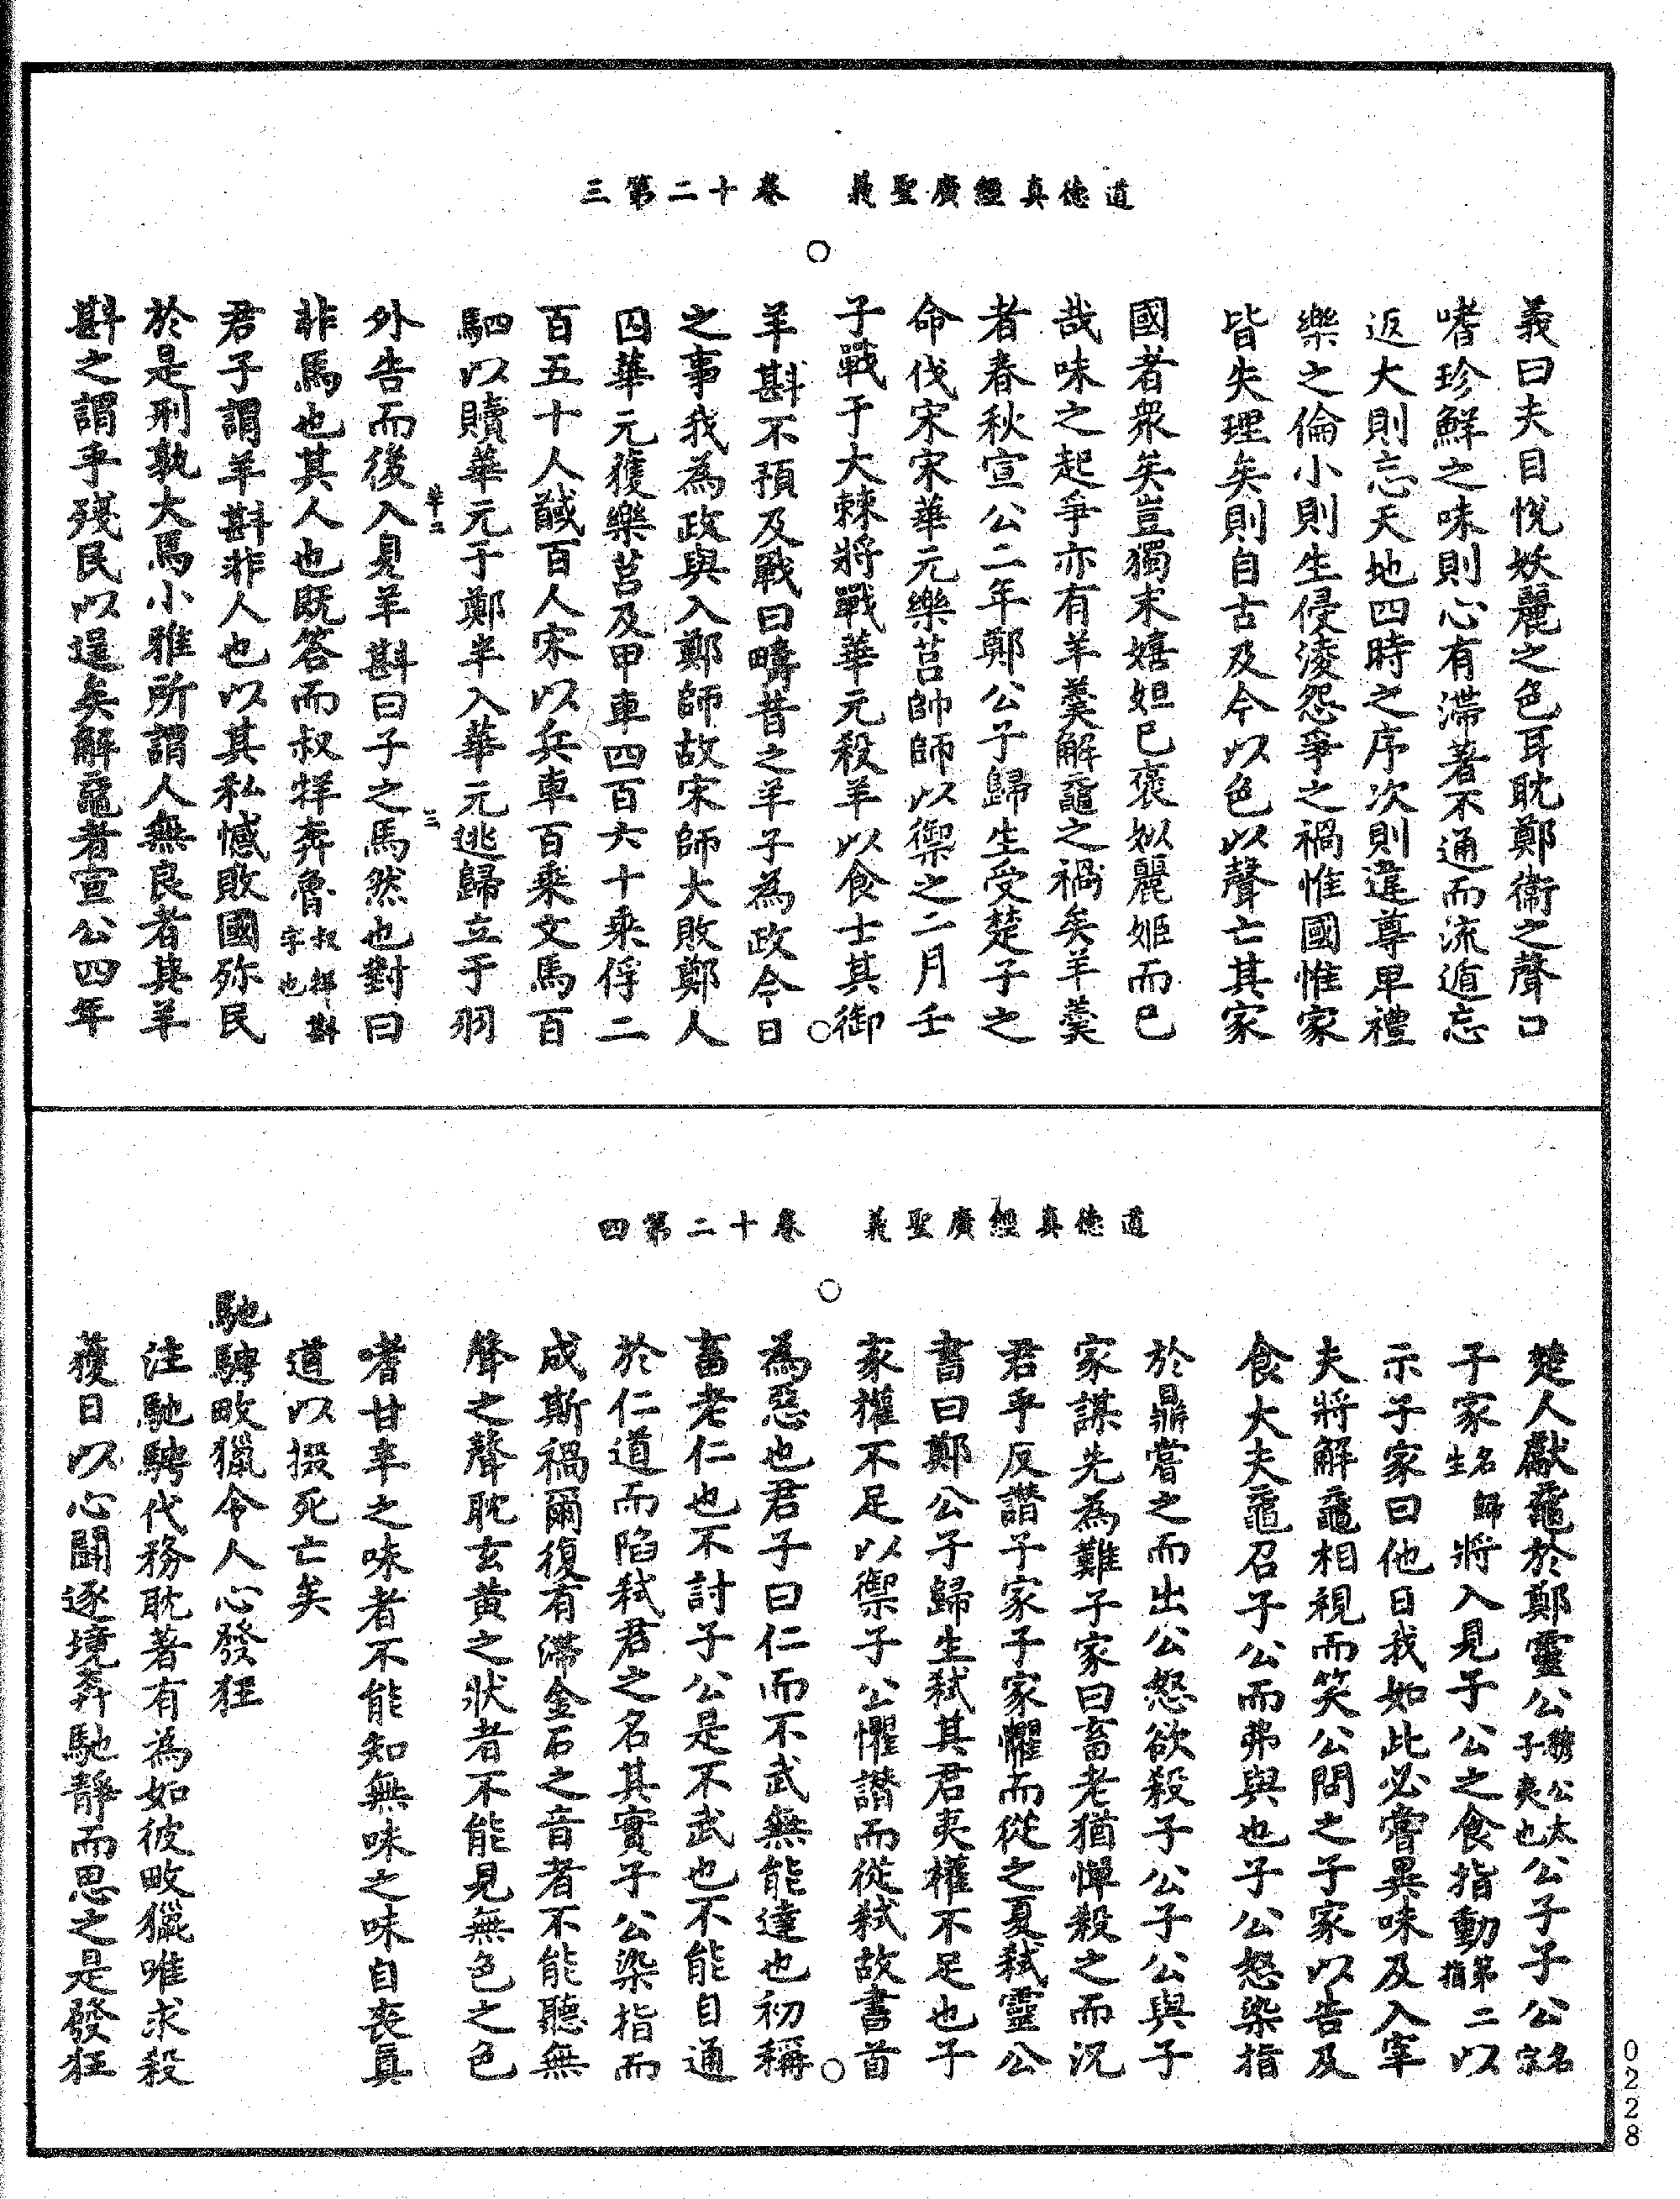 道德真經廣聖義　卷十二第三
義曰夫目悅妖麗之色耳耽鄭衛之聲口
嗜珍鮮之味則心有滯著不通而流遁忘
返大則忘天地四時之序次則違尊卑禮
樂之倫小則生侵淩怨爭之禍惟國惟家
皆失理矣則自古及今以色以聲亡其家
國者衆矣豈獨末嬉妲已褒姒麗姬而已
哉味之起爭亦有羊羹解黿之禍矣羊羹
者春秋宣公二年鄭公子歸生受楚子之
命伐宋宋華元樂莒帥師以禦之二月壬
子戰于大棘將戰華元殺羊以食士其御
羊斟不預及戰曰疇昔之羊子為政今日
之事我為政與入鄭師故宋師大敗鄭人
囚華元獲樂莒及甲車四百六十乘俘二
百五十人馘百人宋以兵車百乘文馬百
駟以贖華元于鄭半入華元逃歸立于羽
外告而後入見羊斟曰子之馬然也對曰
非馬也其人也既答而叔牂奔魯叔牂斟字也
君子謂羊斟非人也以其私憾敗國殄民
於是刑孰大焉小雅所謂人無良者其羊
斟之謂乎殘民以逞矣解黿者宣公四年
道德真經廣聖義　卷十二第四
楚人獻黿於鄭靈公穆公太子夷也公子子公名宋
子家名歸生將入見子公之食指動第二指以
示子家曰他日我如此必嘗異味及入宰
夫將解黿相視而笑公問之子家以告及
食大夫黿召子公而弗與也子公怒染指
於鼎嘗之而出公怒欲殺子公子公與子
家謀先為難子家曰畜老猶憚殺之而況
君乎反譖子家子家懼而從之夏弒靈公
書曰鄭公子歸生弒其君夷權不足也子
家權不足以禦子公懼譖而從弒故書首
為惡也君子曰仁而不武無能達也初稱
畜老仁也不討子公是不武也不能自通
於仁道而陷弒君之名其實子公染指而
成斯禍爾復有滯金石之音者不能聽無
聲之聲耽玄黃之狀者不能見無色之色
嗜甘辛之味者不能知無味之味自喪真
道以掇死亡矣
馳騁畋獵令人心發狂
注馳騁代務耽著有為如彼畋獵唯求殺
獲日以心鬬逐境奔馳靜而思之是發狂
0228